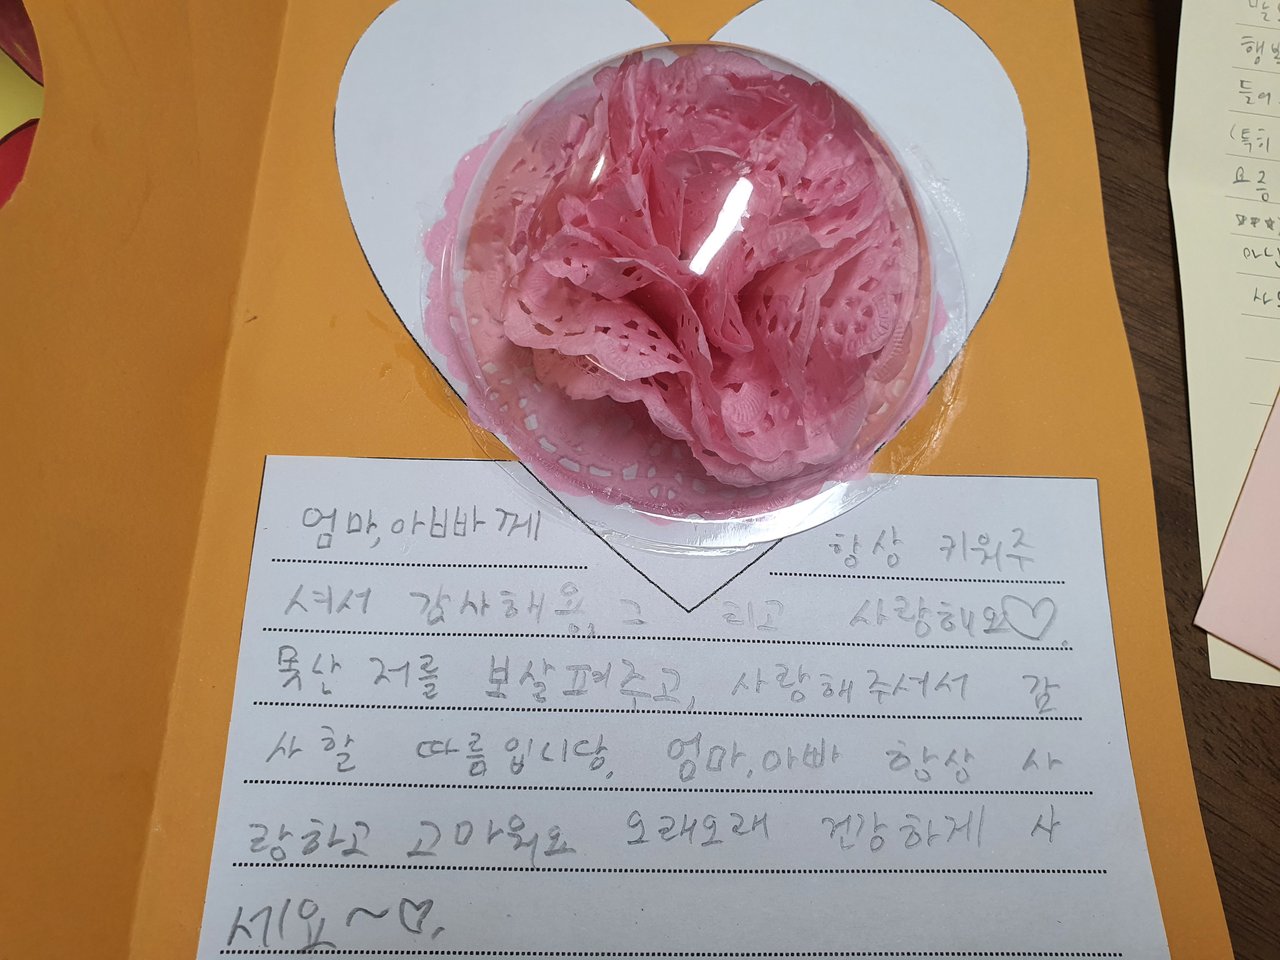 엄마,아빠께
항상 키워주
셔서 감사해용. 그리고 사랑해요♡.
못난 저를 보살펴주고, 사랑해주셔서 감
사할 따름입니당. 엄마,아빠 항상 사
랑하고 고마워요 오래오래 건강하게 사
세요~♡.
들어
(특히
요즘